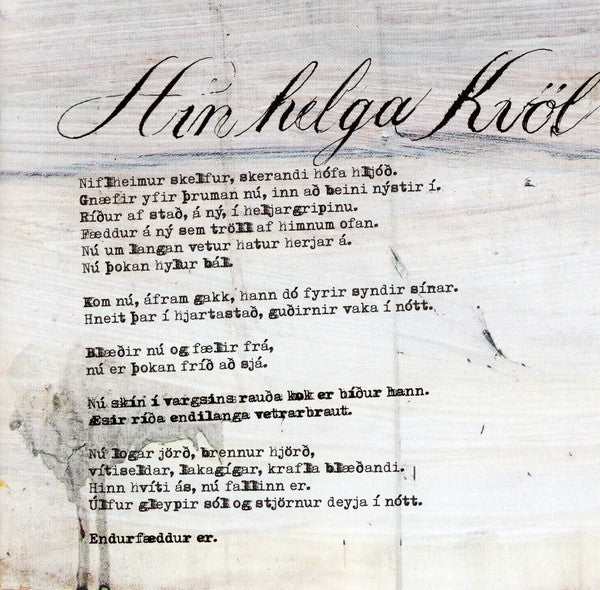 Hin helga Kvöl
Niflheimur skelfur, skerandi hófa hljóð.
Gnæfir yfir þruman nú, inn að beini nýstir í.
Ríður af stað, á ný, í heljargripinu.
Fæddur á ný sem tröll af himnum ofan.
Nú um langan vetur hatur herjar á.
Nú þokan hylur bál.
Kom nú, áfram gakk, hann dó fyrir syndir sínar.
Hneit þar í hjartastað, guðirnir vaka í nótt.
Blæðir nú og fælir frá,
nú er þokan fríð að sjá.
Nú skín í vargsins rauða kok er bíður hann.
Æsir ríða endilanga vetrarbraut.
Nú logar jörð, brennur hjörð,
vítiseldar, lakagígar, krafla blæðandi.
Hinn hvíti ás, nú fallinn er.
Úlfur gleypir sól og stjörnur deyja í nótt.
Endurfæddur er.